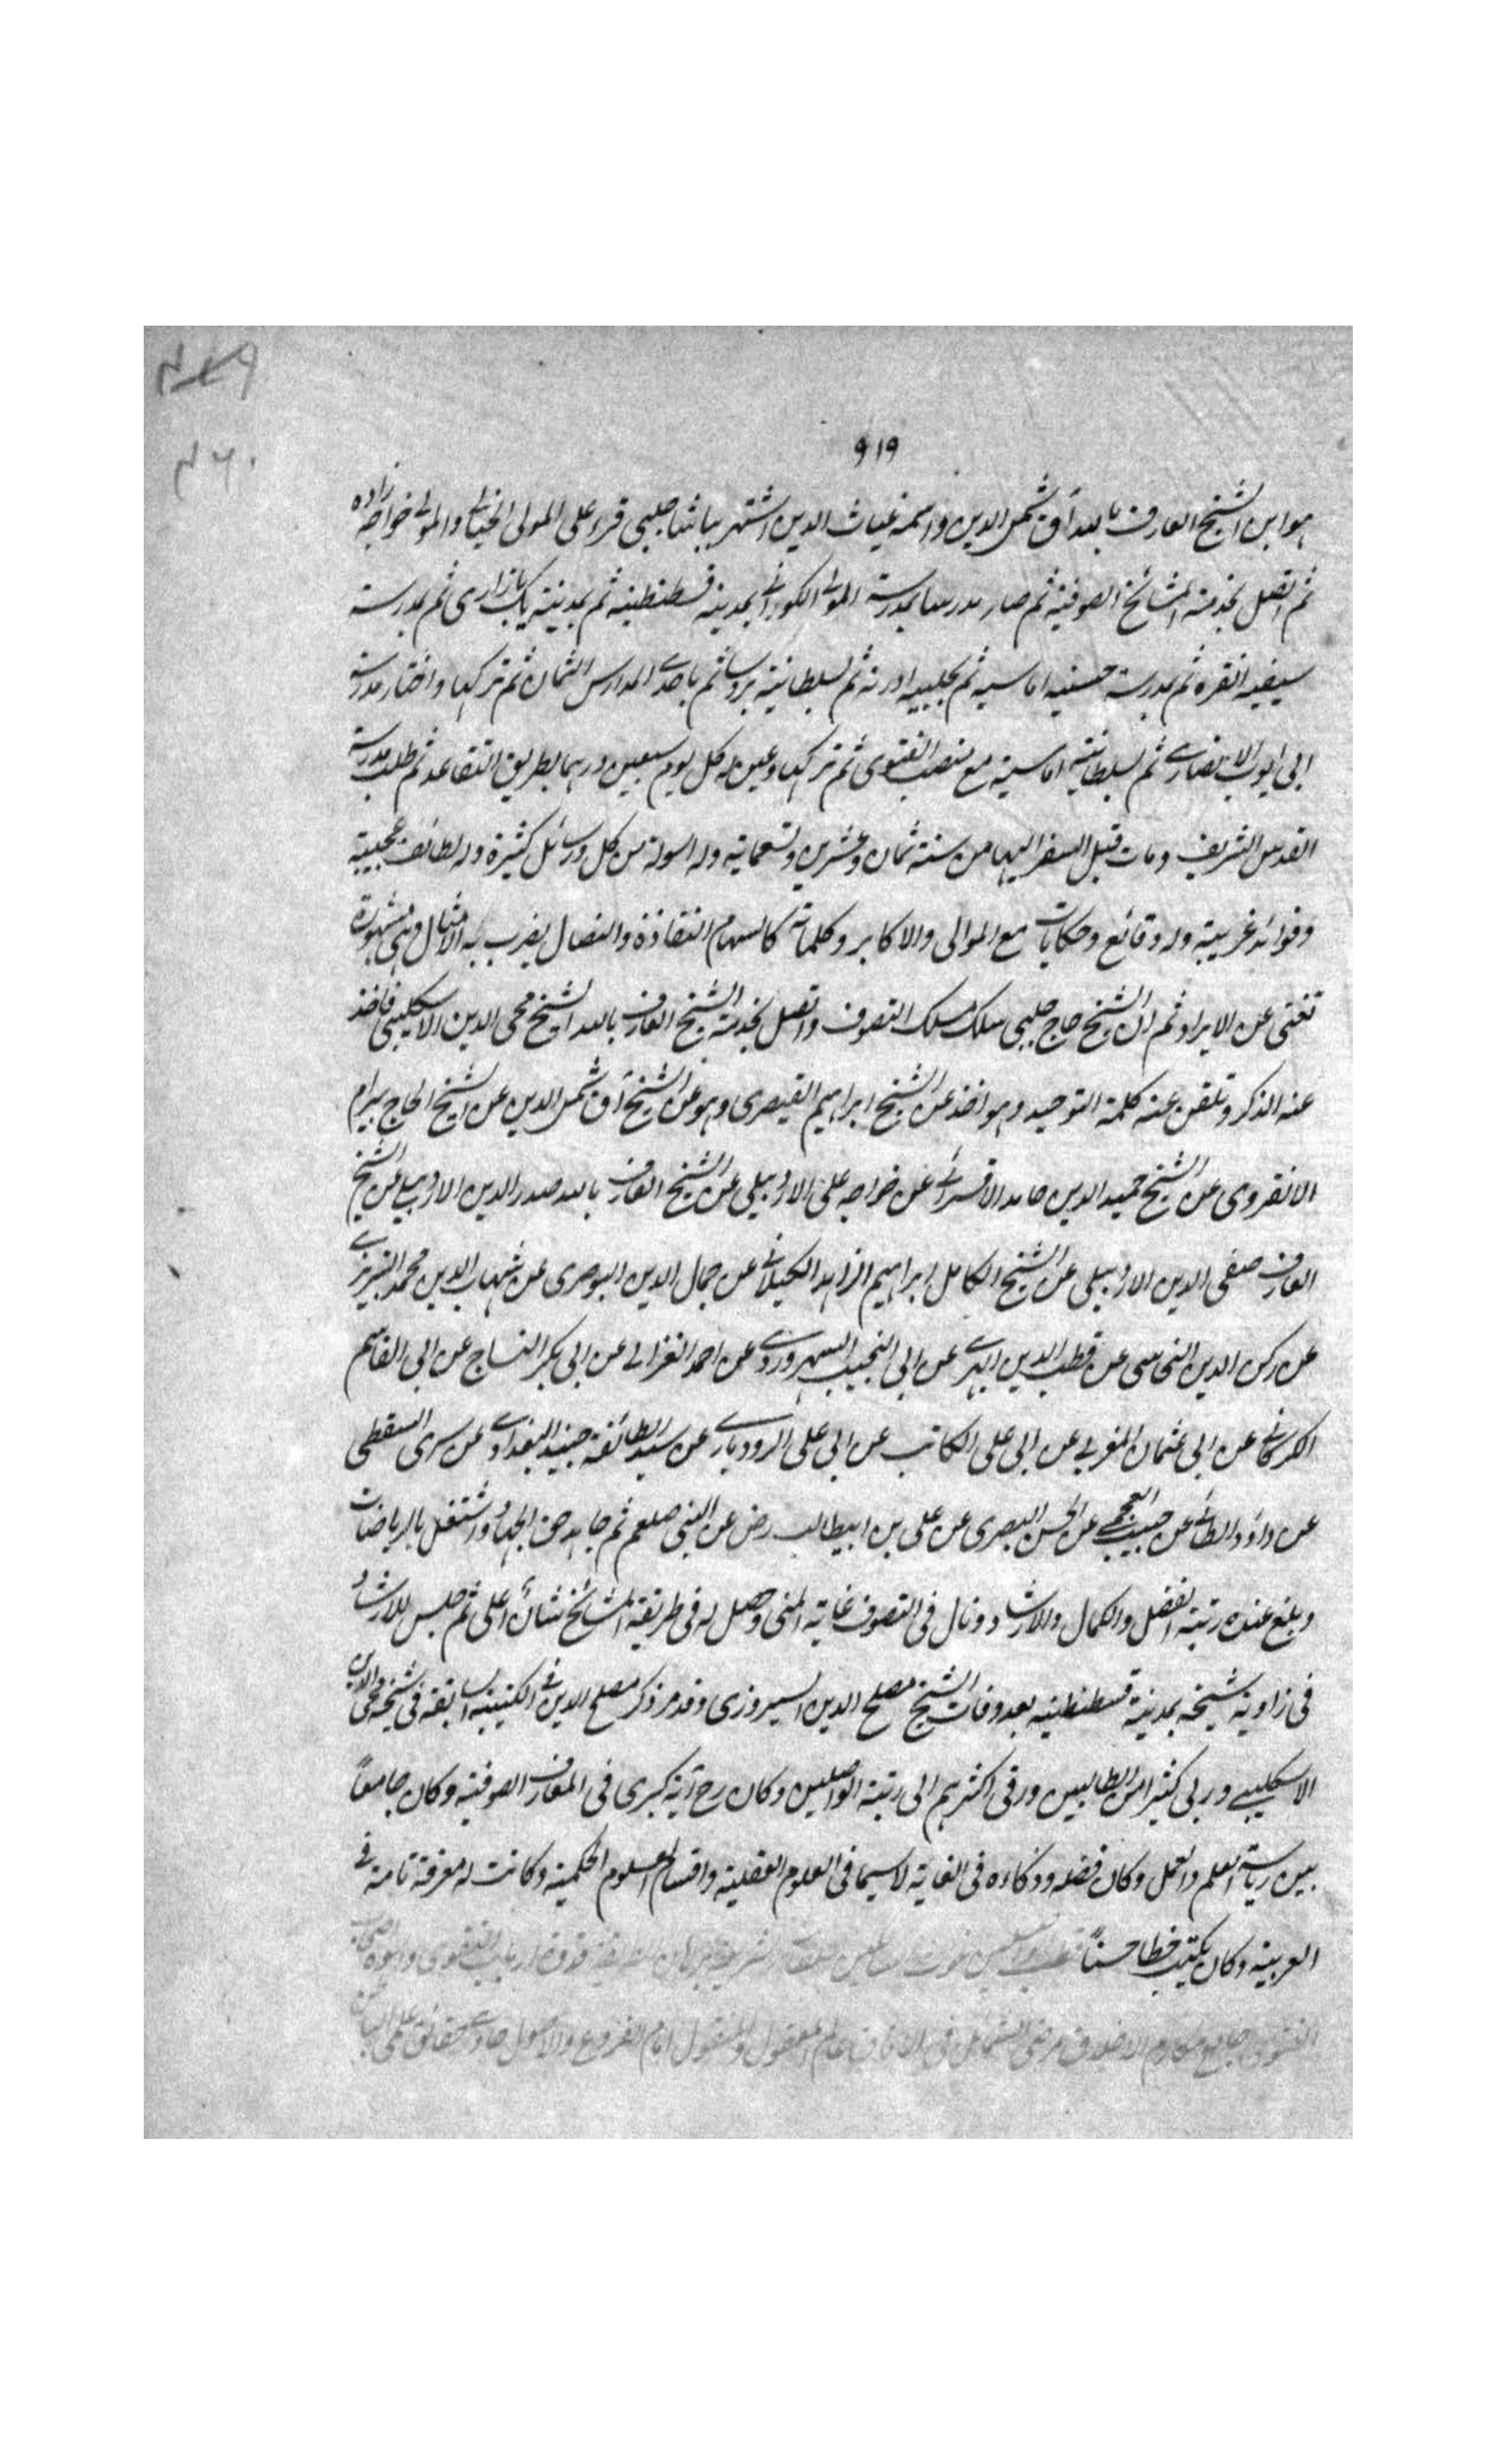 ٤٥٩
٤٦٠
٩١٩
هو ابن الشيخ العارف بالله آق شمس الدين واسمه غياث الدين اشتهر بباشا چلبى قرء على المولى الخيالى والمولى خواجه زاده
ثم اتصل بخدمة المشائخ الصوفية ثم صار مدرسا بمدرسة المولى الكورانى بمدينة قسطنطنيه ثم بمدينة يكبازارى ثم بمدرسة
سيفيه انقره ثم بمدرسة حسينيه اماسيه ثم بحلبيه ادرنه ثم بسلطانية بروسا ثم باحدى المدارس الثمان ثم تركها واختار مدرسة
ابى ايوب الانصارى ثم بسلطانية اماسية مع منصب الفتوى ثم تركها وعين له كل يوم سبعين درهما بطريق التقاعد ثم طلب مدرسة
القدس الشريف ومات قبل السفر اليها من سنة ثمان وعشرين وتسعمايه وله اسولة من كل ورسائل كثيرة وله لطائف عجيبة
وفوائد غريبة وله وقائع وحكايات مع الموالى والاكابر وكلماته كالسهام النقاذة والنصال يضرب به الامثال وهى مشهورة
تغنى عن الايراد ثم ان الشيخ حاج چلبى سلك مسلك التصوف واتصل بخدمة الشيخ العارف بالله الشيخ محى الدين الاسكليبى فاخذ
عنه الذكر وتلقن عنه كلمة التوحيد وهو اخذ عن الشيخ ابراهيم القيصرى وهو عن الشيخ آق شمس الدين عن الشيخ الحاج بيرام
الانقروى عن الشيخ حميد الدين حامد الاقسرائى عن خواجه على الاردبيلى عن الشيخ العارف بالله صدر الدين الاردبيلى عن الشيخ
العارف صفى الدين الاردبيلى عن الشيخ الكامل ابراهيم الزاهد الكيلانى عن جمال الدين البوصرى عن شهاب الدين محمد التبريزى
عن ركن الدين النحاسى عن قطب الدين ابهرى عن ابى النجيب السهروردى عن احمد الغزالى عن ابى بكر النساج عن ابى القاسم
الكركانى عن ابى عثمان المغربى عن ابى على الكاتب عن ابى على الرودبارى عن سيد الطائفة جنيد البغدادى عن سرى السقطى
عن داود الطائى عن حبيب العجمى عن الحسن البصرى عن على بن ابيطالب رض عن النبى صلعم ثم جاهد حق الجهاد واشتغل بالرياضات
وبلغ عنده رتبة الفضل والكمال والارشاد ونال فى التصوف غاية المنى وحصل له فى طريقة المشائخ شأن اعلى ثم جلس للارشاد
فى زاوية شيخه بمدينة قسطنطنيه بعد وفات الشيخ مصلح الدين السيروزى وقد مر ذكر مصلح الدين فى الكتيبة السابقه فى شيخه محى الدين
الاسكليبى وربى كثيرا من الطالبين ورقى اكثرهم الى رتبة الواصلين وكان رح آية كبرى فى المعارف الصوفية وكان جامعاً
بين رياسة العلم والعمل وكان فضله وذكاءه فى الغاية لاسيما فى العلوم العقلية واقسام العلوم الحكمية وكانت له معرفة تامة فى
العربية وكان يكتب خطا حسناً ارباب التقوى واسوة اصحاب
الفتوى جامع مكارم الاخلاق مرضى الشمائل فى الافاق عالم المعقول والمنقول امام الفروع والاصول